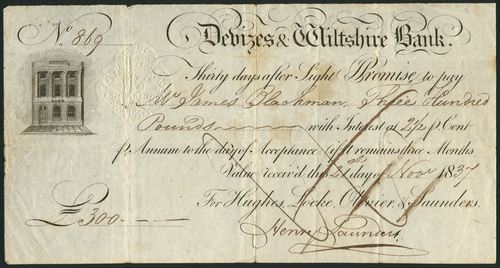 No. 869
Devizes & Wiltshire Bank.
BANK
Thirty days after Sight Promise to pay
Mr James Blackman, Three Hundred
Pounds with Interest at 2½ p Cent
p. Annum to the day of Acceptance if left remains three Months
Value receiv'd this 21st day of Novr 1837
For Hughes, Locke, Olivier, & Saunders.
£300
Henry Saunders